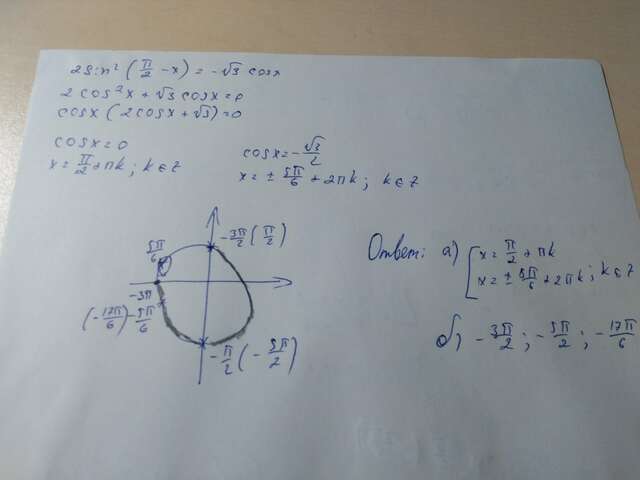 2sin²(π/2 - x) = -√3 cosx
2cos²x + √3 cosx = 0
cosx(2cosx + √3) = 0
cosx = 0
x = π/2 + πk; k∈Z
cosx = -√3/2
x = ± 5π/6 + 2πk; k∈Z
-3π/2 (π/2)
5π/6
-3π
(-17π/6) -5π/6
-π/2 (-5π/2)
Ответ: а) [x = π/2 + πk
x = ± 5π/6 + 2πk; k∈Z
б) -3π/2; -5π/2; -17π/6